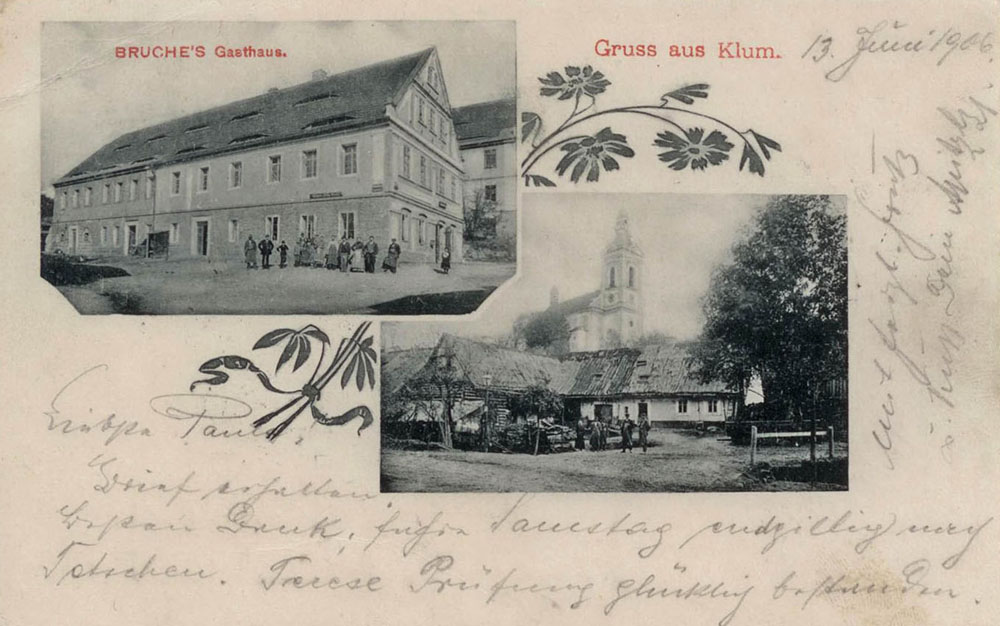 BRUCHE'S Gasthaus.
Gruss aus Klum.
13. Juni 1906.
Liebste Paula,
Brief erhalten
besten Dank, fahre Samstag endgillig nach
Tetschen. Terese Prüfung glücklig bestanden.
u.